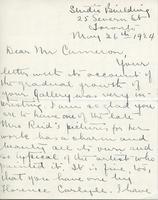 Studio Building
25 Severn St
Toronto
May 26th 1924
Dear Mr Cameron,
Your
letter with its account of
the gradual growth of
your gallery was very in-
teresting. I am so glad you
are to have one of the late
Mrs Reid's pictures for her
work has a charm and
beauty all its own and
so typical of the artist who
painted it. It is fine, too,
that you have one by
Florence Carlyle. I have